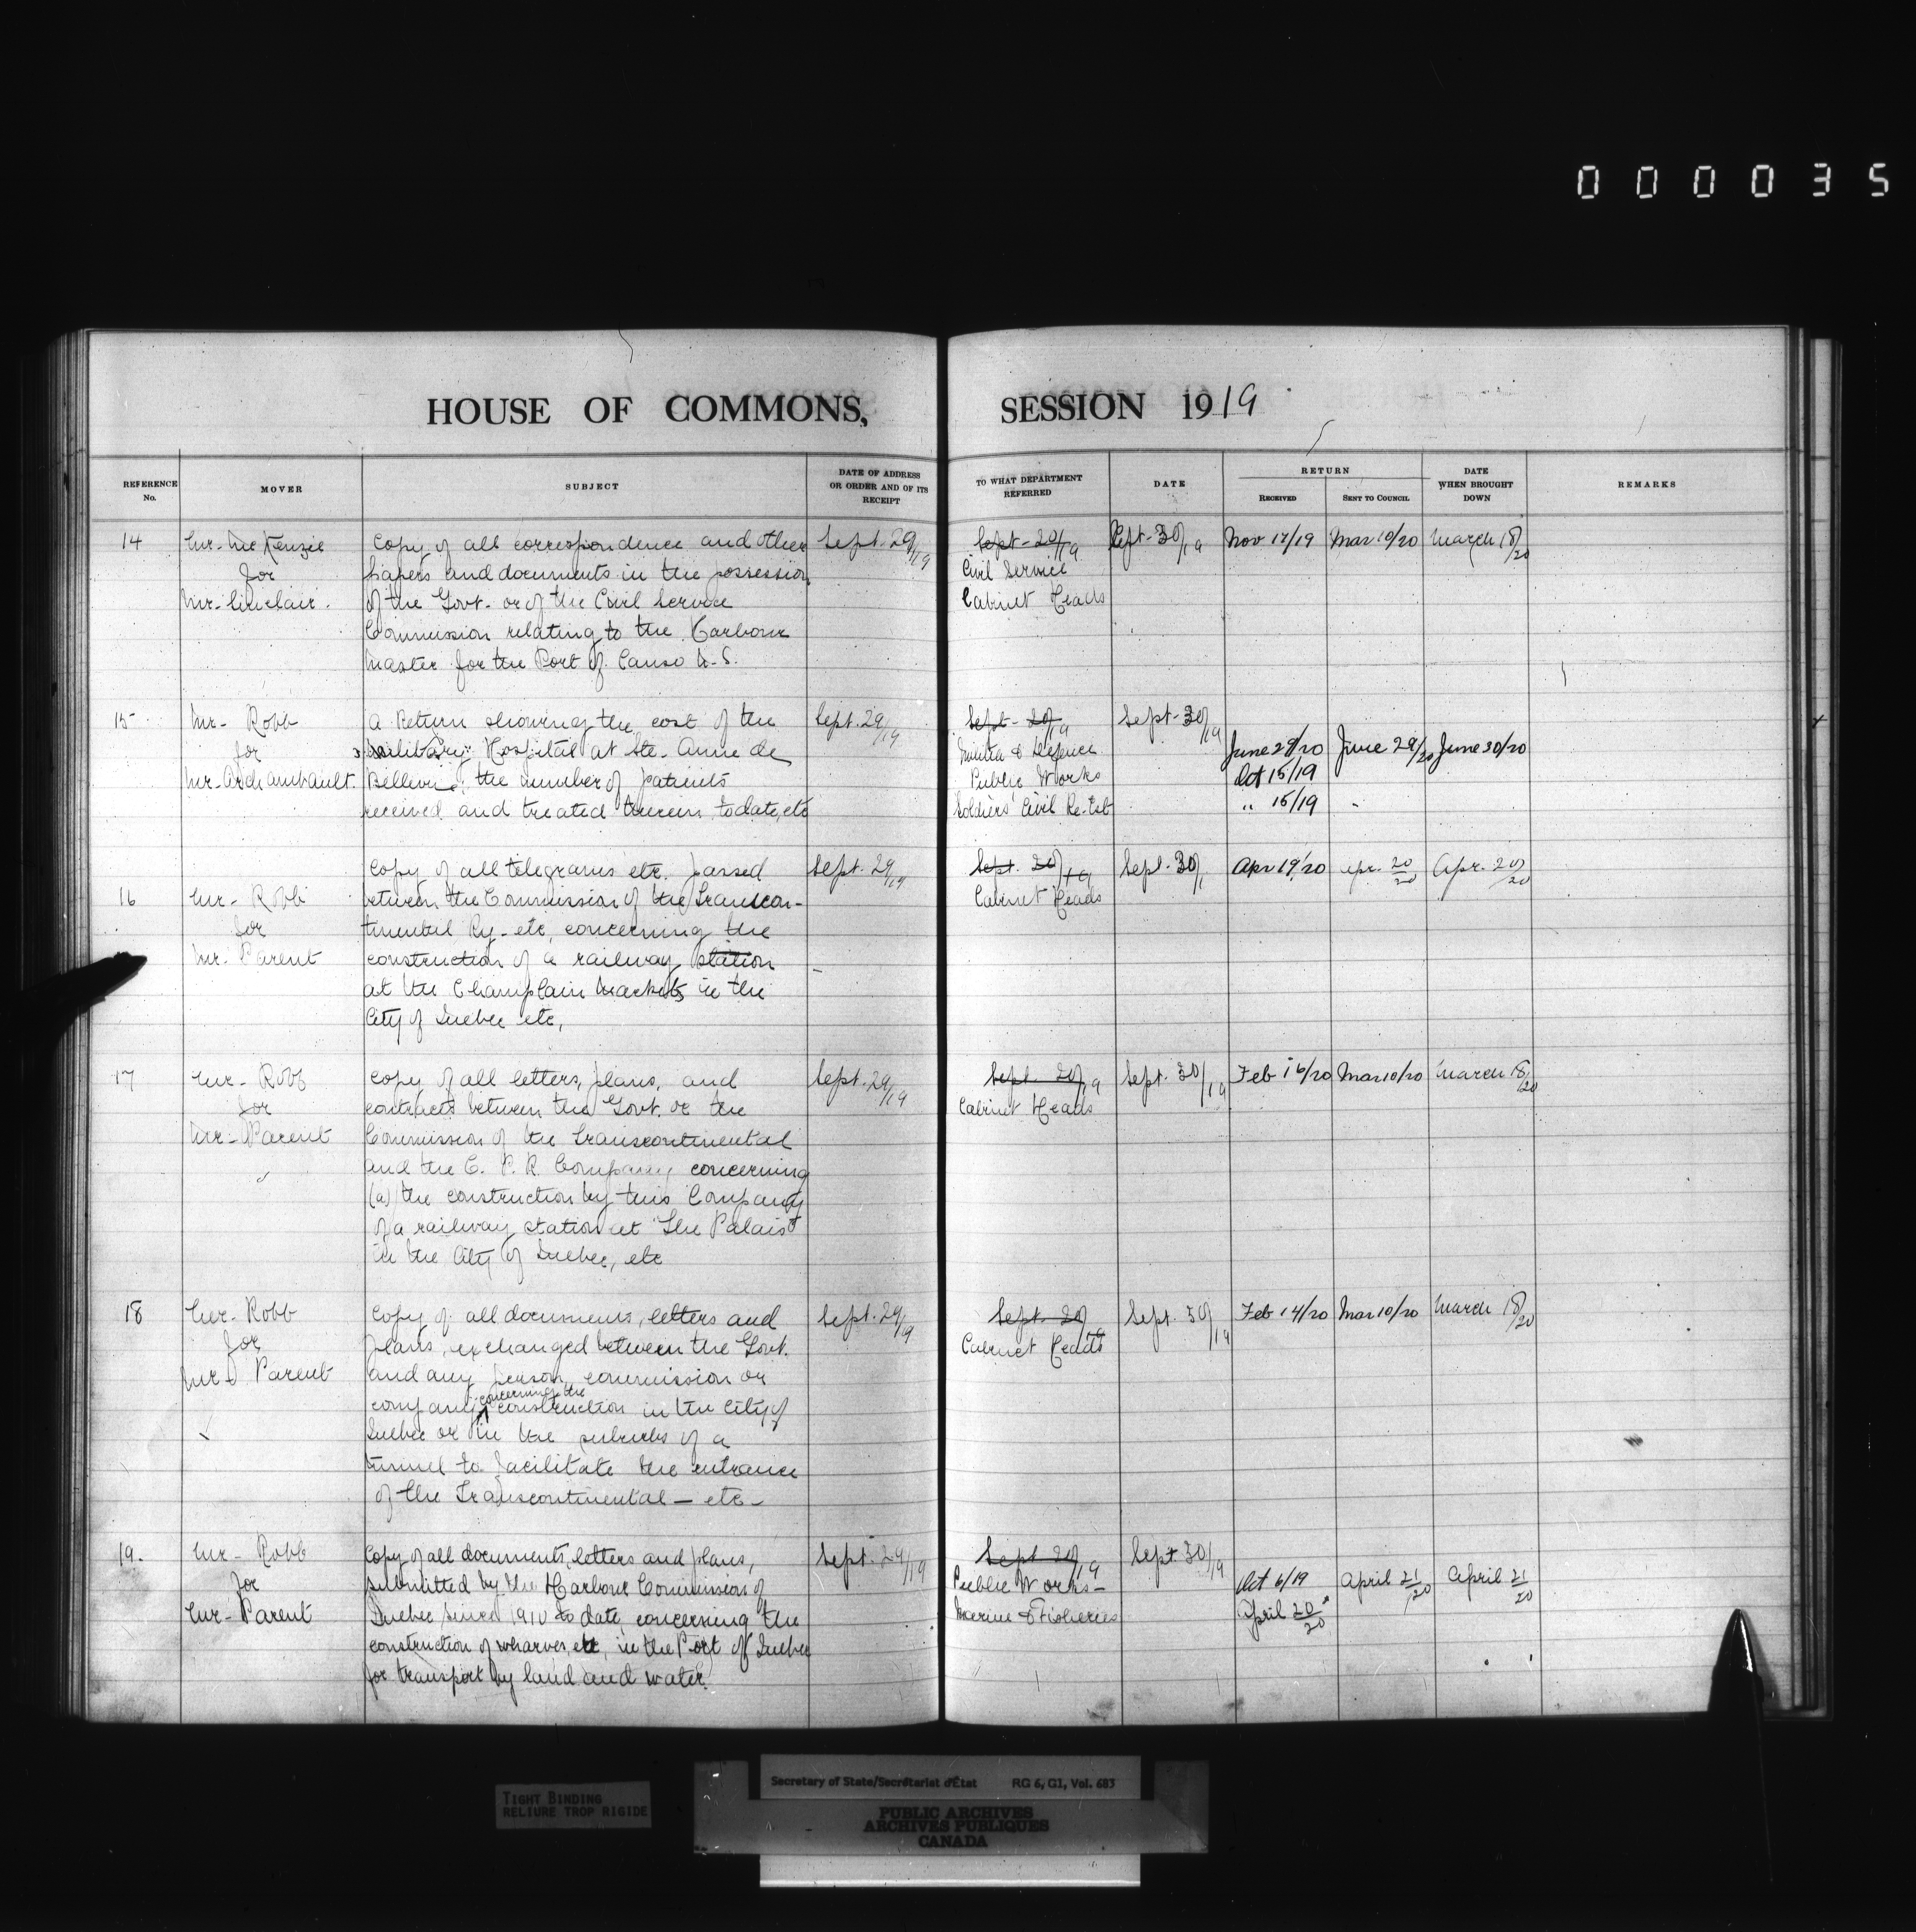 0 0 0 0 3 5
HOUSE OF COMMONS, SESSION 1919
REFERENCE No.
MOVER
SUBJECT
DATE OF ADDRESS OR ORDER AND OF ITS RECEIPT
TO WHAT DEPARTMENT REFERRED
DATE
RETURN
RECEIVED
SENT TO COUNCIL
DATE WHEN BROUGHT DOWN
REMARKS
14 Mr. McKenzie for Mr. Sinclair.
Copy of all correspondence and other
papers and documents in the possession
of the Govt. or of the Civil Service
Commission relating to the Harbour
Master for the Port of Canso N.S.
Sept. 29/19
Sept - 20/19
Civil Service
Cabinet Heads
Sept. 30/19
Nov 17/19
Mar 10/20
March 18/20
15 Mr. Robb for Mr. Archambault.
A Return showing the cost of the
Military Hospital at Ste. Anne de
Bellevue, the number of patients
received and treated therein to date, etc
Sept. 29/19
Sept - 20/19
Militia & Defence
Public Works
Soldiers' Civil Re-Est
Sept. 30/19
June 29/20
Oct 15/19
" 15/19
June 29/20
June 30/20
16 Mr. Robb for Mr. Parent
Copy of all telegrams etc. passed
between the Commission of the Transcon-
tinental Ry. etc, concerning the
construction of a railway station
at the Champlain Markets in the
City of Quebec etc,
Sept. 29/19
Sept. 20/19
Cabinet Heads
Sept. 30/
Apr 19/20
Apr. 20/20
Apr. 20/20
17 Mr. Robb for Mr. Parent
Copy of all letters, plans, and
contracts between the Govt. or the
Commission of the Transcontinental
and the C. P. R. Company concerning
(a) the construction by this Company
of a railway station at "The Palais"
in the City of Quebec, etc
Sept. 29/19
Sept. 20/19
Cabinet Heads
Sept. 30/19
Feb 16/20
Mar 10/20
March 18/20
18 Mr. Robb for Mr. Parent
Copy of all documents, letters and
plans, exchanged between the Govt.
and any person, commission or
company concerning the construction in the City of
Quebec or in the suburbs of a
tunnel to facilitate the entrance
of the Transcontinental - etc -
Sept. 29/19
Sept. 20/19
Cabinet Heads
Sept. 30/19
Feb 14/20
Mar 10/20
March 18/20
19. Mr. Robb for Mr. Parent
Copy of all documents, letters and plans,
submitted by the Harbour Commission of
Quebec since 1910 to date concerning the
construction of wharves, etc, in the Port of Quebec
for transport by land and water.
Sept. 29/19
Sept 20/19
Public Works -
Marine & Fisheries
Sept 30/19
Oct 6/19
April 20/20
April 21/20
April 21/20
TIGHT BINDING
RELIURE TROP RIGIDE
Secretary of State/Secrétariat d'État RG 6, G1, Vol. 683
PUBLIC ARCHIVES
ARCHIVES PUBLIQUES
CANADA